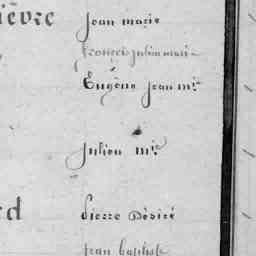 ièvre Jean marie
françois julien marie
Eugène Jean Mie
Julien Mie
rd pierre Désiré
jean baptiste